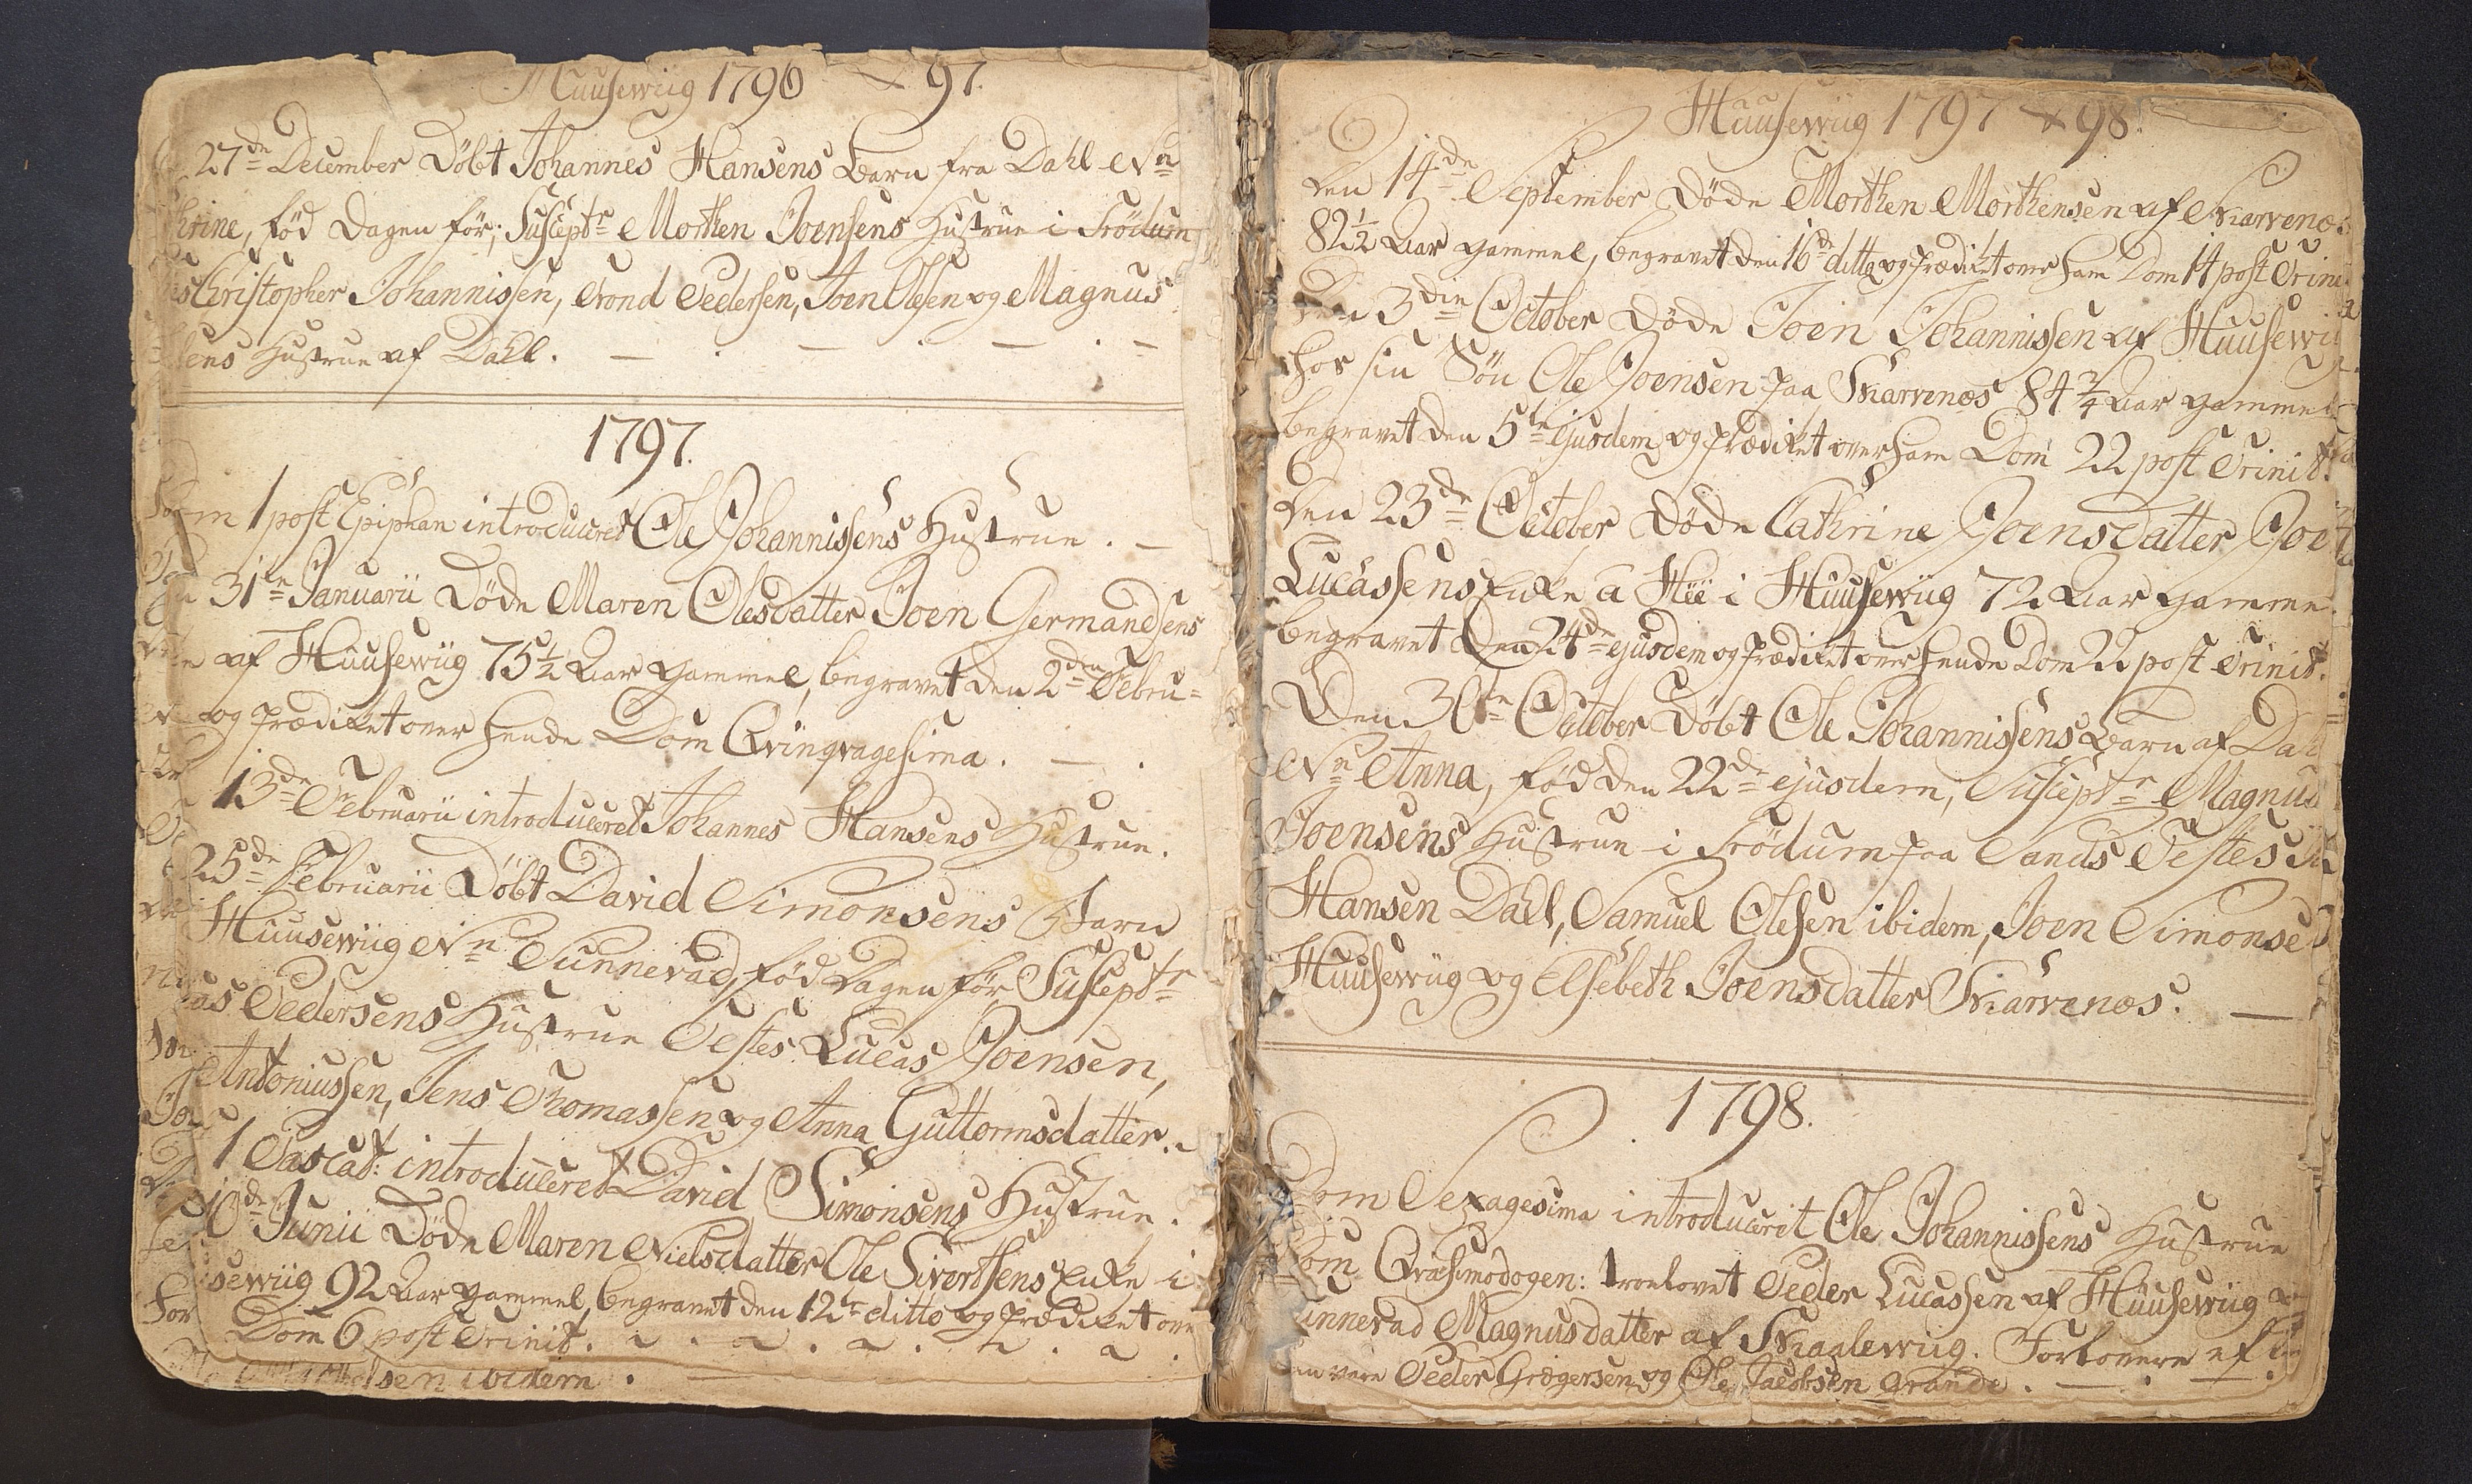 Huusewiig 1796 & 97.
27de December Döbt Johannes Hansens Barn fra Dahl Nn
hrine, föd Dagen för; Suscept:r Morthen Joensens Hustrue i Frödum
es Christopher Johannissen, Trond Pedersen, Joen Olesen og Magnus
sens Hustrue af Dahl.
1797.
Dom 1 post Epiphan introduceret Ole Johannissens Hustrue.
31te Januarii Döde Maren Olesdatter Joen Germandsens
af Huusewiig 75 1/2 Aar gammel, begravet den 2den Febru=
og Prædiket over hende Dom Qvinqvagesima.
13de Februarii introduceret Johannes Hansens Hustrue.
25de Februarii Döbt David Simonsens Barn
Huusewiig Nn Sunnevad, föd Dagen för, Suscept:r
cas Pedersens Hustrue Testes Lucas Joensen,
Antoniussen, Jens Thomassen og Anna Guttormsdatter.
1 Pascat: introduceret David Simonsens Hustrue.
10de Junii Döde Maren Nielsdatter Ole Sivertsens Enke i
sewiig 92 Aar gammel, begravet den 12te ditto og Prædiket over
Dom 6 post Trinit.
sen ibidem.
Huusewiig 1797 & 98.
Den 14de September Döde Morthen Morthensen af Skarvenæs
82 1/2 Aar gammel, begravet den 16de ditto og Prædiket over ham Dom 14 post Trinit
Den 3die October Döde Joen Johannissen af Huusewiig
hos sin Sön Ole Joensen paa Skarvenæs 84 3/4 Aar gammel
begravet den 5te ejusdem og Prædiket over ham Dom 22 post Trinit.
Den 23de October Döde Cathrine Joensdatter Joen
Lucassens Enke a Hæe i Huusewiig 72 Aar gammel
begravet den 24de ejusdem og Prædiket over hende Dom 22 post Trinit.
Den 30te October Döbt Ole Johannissens Barn af Dahl
Nn Anna, föd den 22de ejusdem, Suscept:r Magnus
Joensens Hustrue i Frödum paa Sands Testes
Hansen Dahl, Samuel Olesen ibidem, Joen Simonsen
Huusewiig og Elsebeth Joensdatter Skarvenæs.
1798.
Dom Sexagesima introduceret Ole Johannissens Hustrue
Dom Qvasimodogen: trolovet Peder Lucassen af Huusewiig
unnevad Magnusdatter af Skaalewiig. Forlovere
vare Peder Grægersen og Ole Jacobsen Trande.